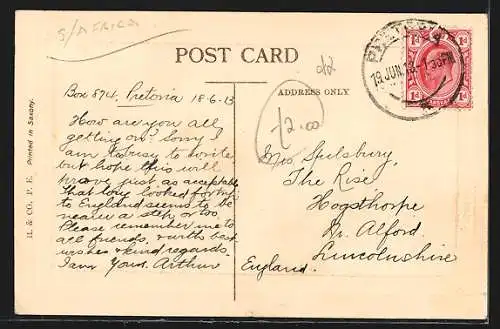 S/AFRICA
POST CARD
ADDRESS ONLY
£2.00
Box 874. Pretoria 18-6-13
How are you all
getting on? Sorry I
am to busy to write
but hope this will
prove just as acceptable
That long looked for trip
to England seems to be
nearer a step or too.
Please remember me to
all friends. with best
wishes & kind regards.
I am Yours. Arthur
Mrs Spilsbury,
The Rise
Hogsthorpe
Nr. Alford.
Lincolnshire
England.
19 JUN 13
1d 1d
H. & CO., P. E. Printed in Saxony.